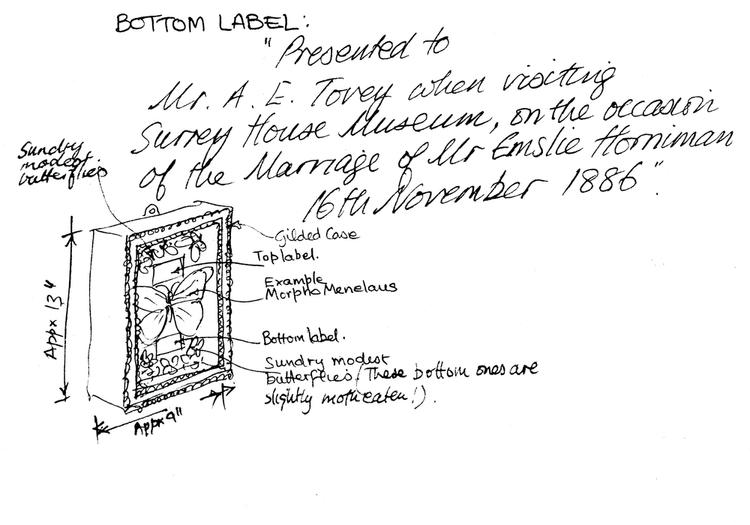 BOTTOM LABEL:
"Presented to
Mr. A. E. Tovey when visiting
Surrey House Museum, on the occasion
of the Marriage of Mr Emslie Horniman
16th November 1886".
Sundry
modest
butterflies
Gilded Case
Top label.
Example
Morpho Menelaus
Bottom label.
Sundry modest
butterflies (These bottom ones are
slightly motheaten!).
Appx 13"
Appx 9"